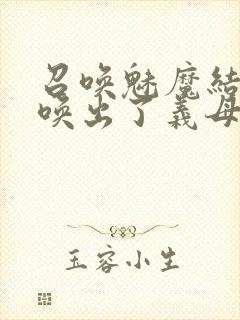 召唤魅魔结
唤出了义母
玉容小生